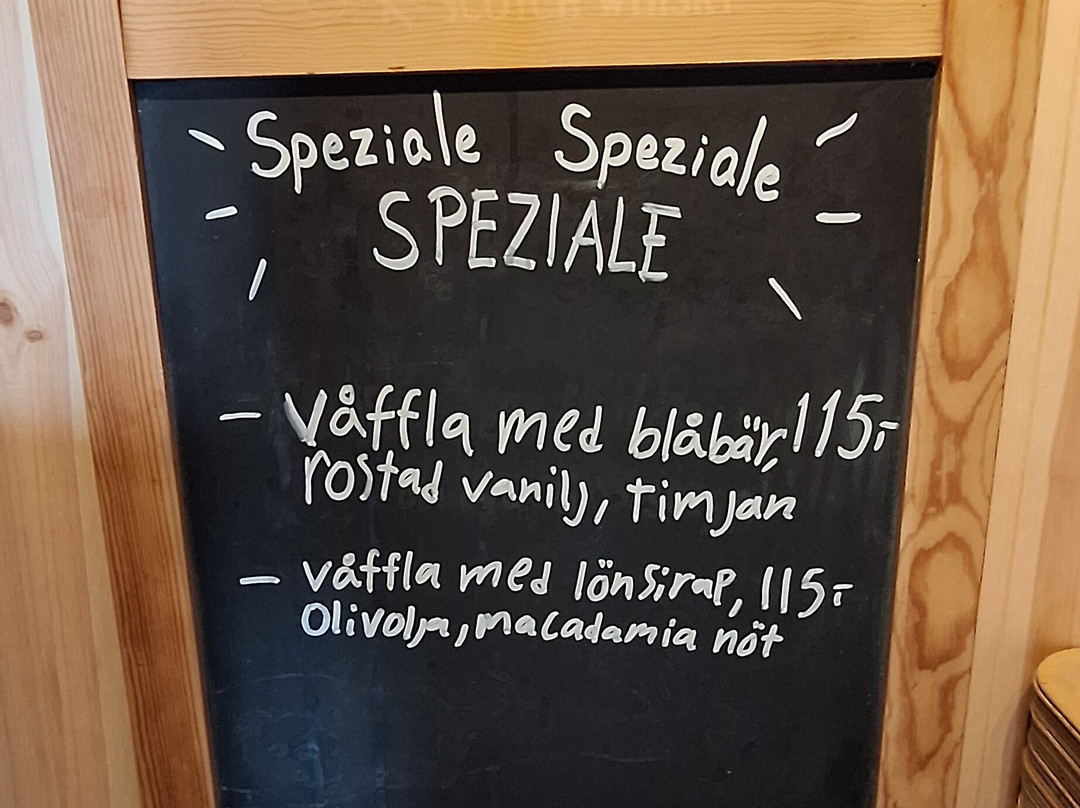 Speziale Speziale
SPEZIALE
- Våffla med blåbär, 115:-
rostad vanilj, timjan
- våffla med lönsirap, 115:-
Olivolja, macadamia nöt